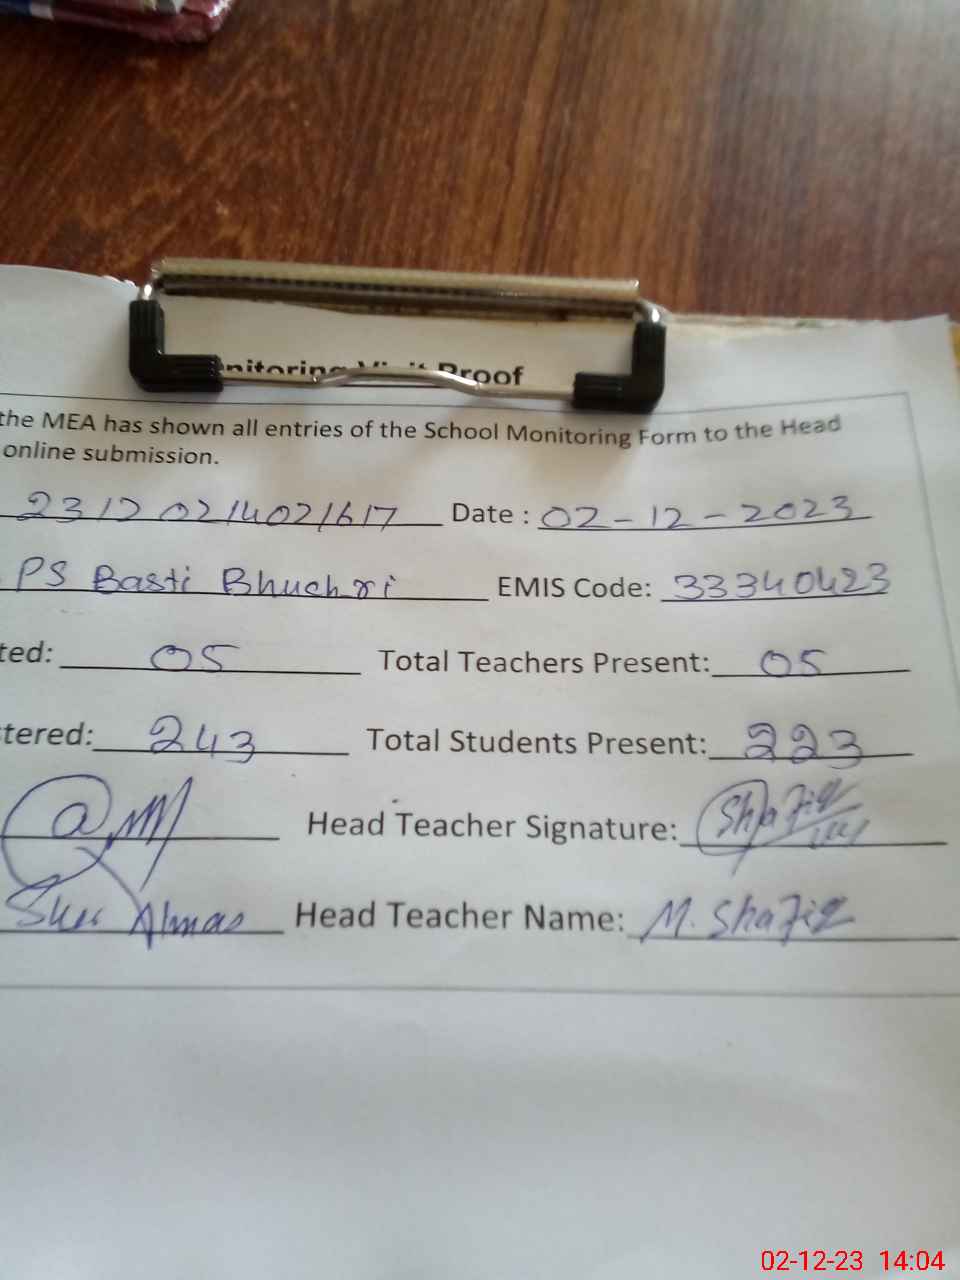 nitoring Visit Proof
the MEA has shown all entries of the School Monitoring Form to the Head
online submission.
23120214021617 Date : 02-12-2023
PS Basti Bhuchri EMIS Code: 33340423
ted: 05 Total Teachers Present: 05
tered: 243 Total Students Present: 223
Head Teacher Signature: Shafiq
Almas Head Teacher Name: M. Shafiq
02-12-23 14:04